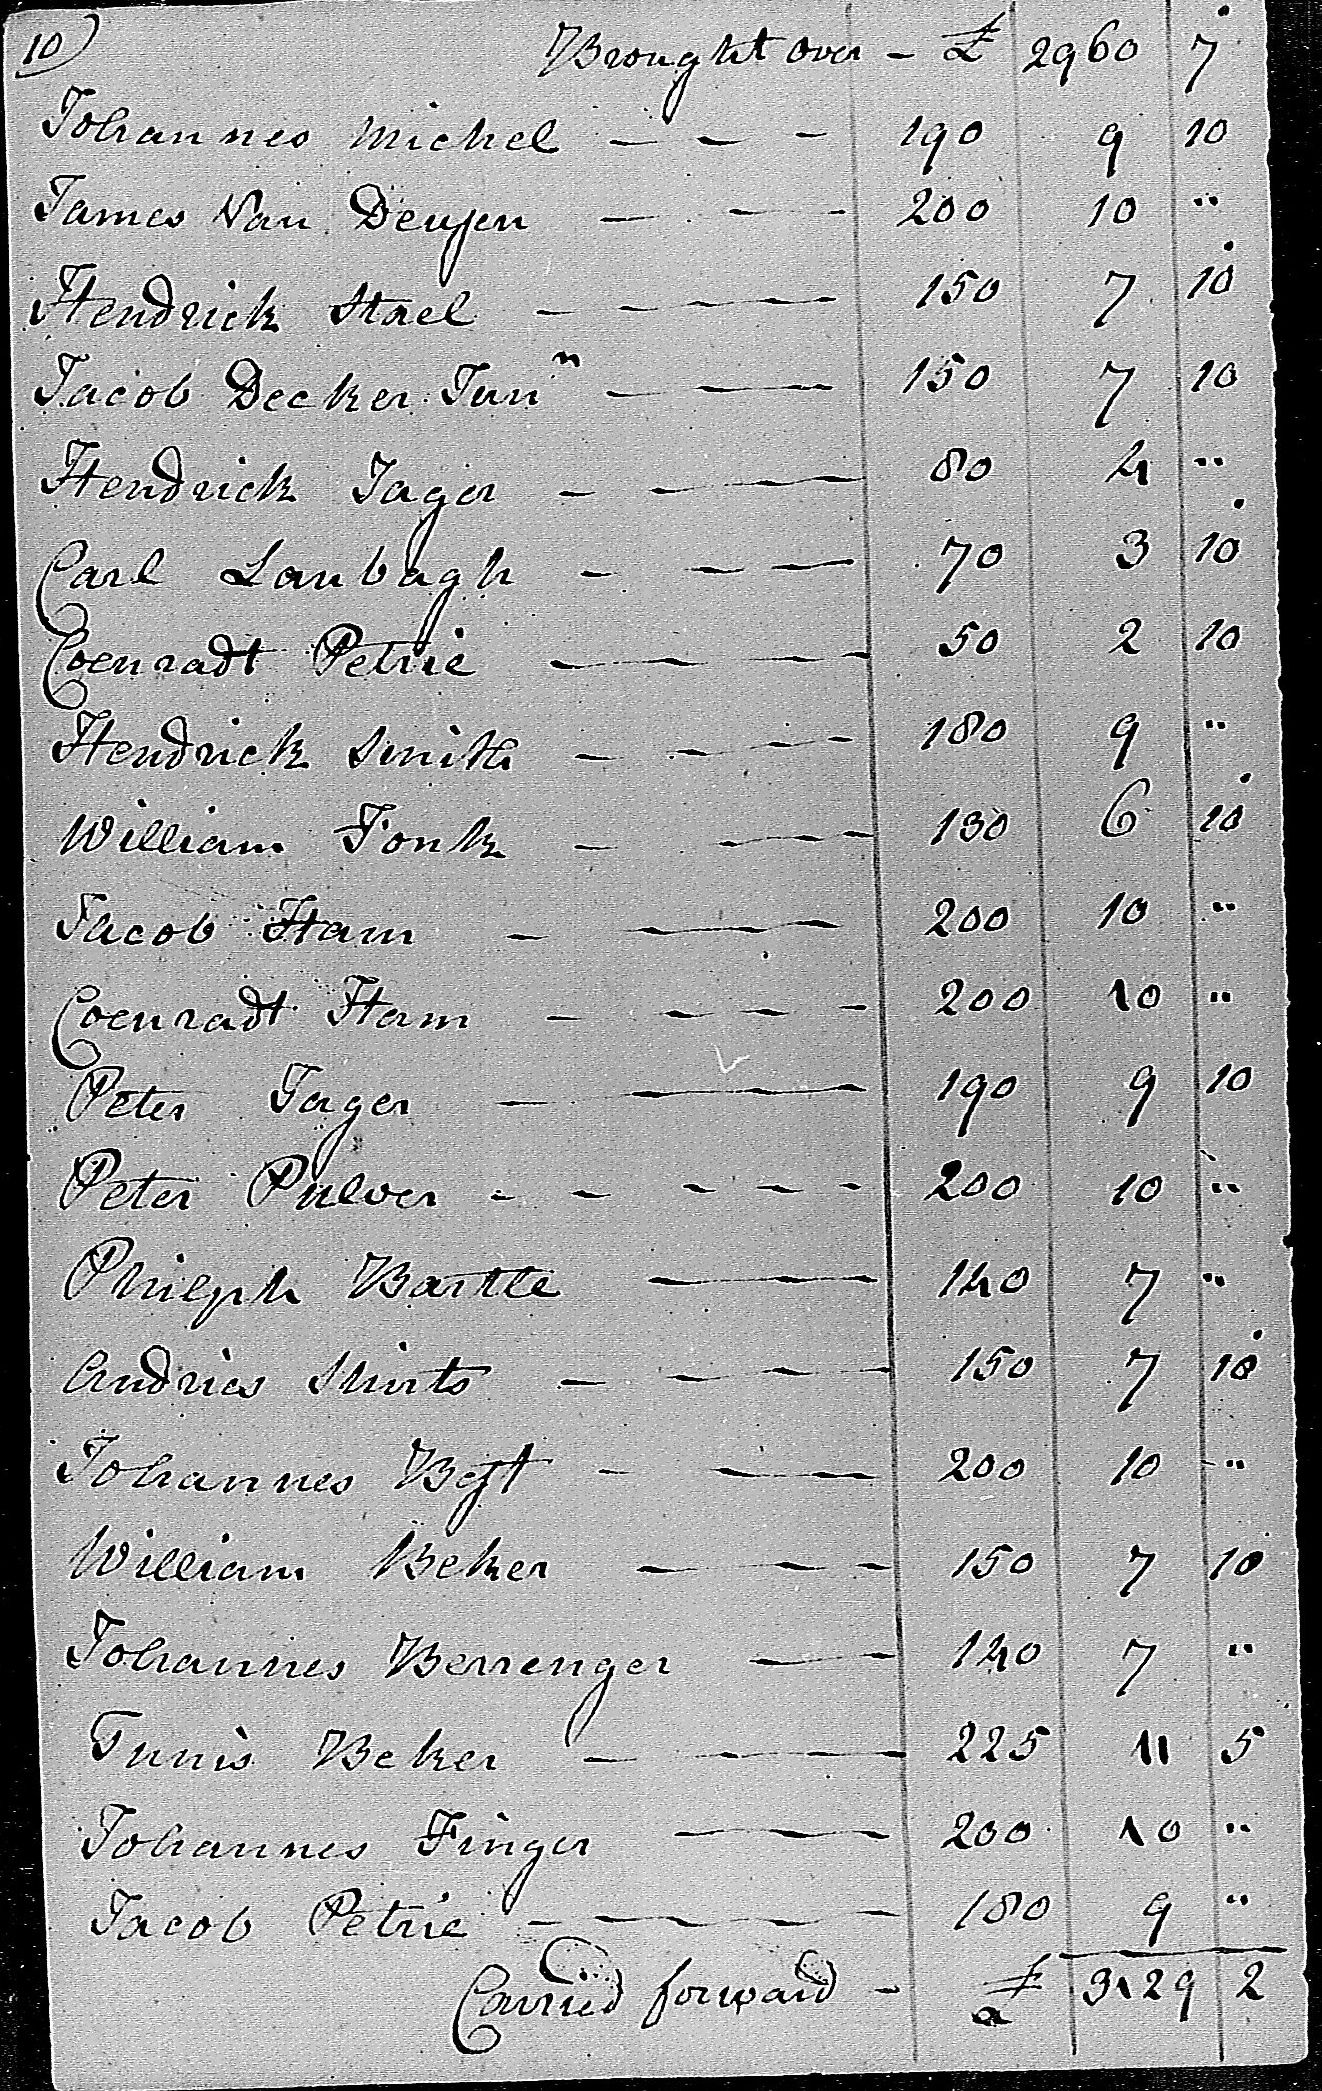 10)
Brought over - £ 2960 7
Johannes Michel - - - 190 9 10
James Van Deusen - - - 200 10 "
Hendrick Stael - - - - 150 7 10
Jacob Decker Junr - - - 150 7 10
Hendrick Jager - - - - 80 4 "
Carl Laubagh - - - - 70 3 10
Coenradt Petrie - - - - 50 2 10
Hendrick Smith - - - - 180 9 "
William Fonk - - - - 130 6 10
Jacob Ham - - - - 200 10 "
Coenradt Ham - - - - - 200 10 "
Peter Jager - - - - 190 9 10
Peter Pulver - - - - - 200 10 "
Philiph Bartle - - - 140 7 "
Andries Shirts - - - - 150 7 10
Johannes Best - - - - 200 10 "
William Beker - - - - 150 7 10
Johannes Berrenger - - - 140 7 "
Tunis Beker - - - - 225 11 5
Johannes Finger - - - - 200 10 "
Jacob Petrie - - - - - 180 9 "
Carried forward - £ 3129 2